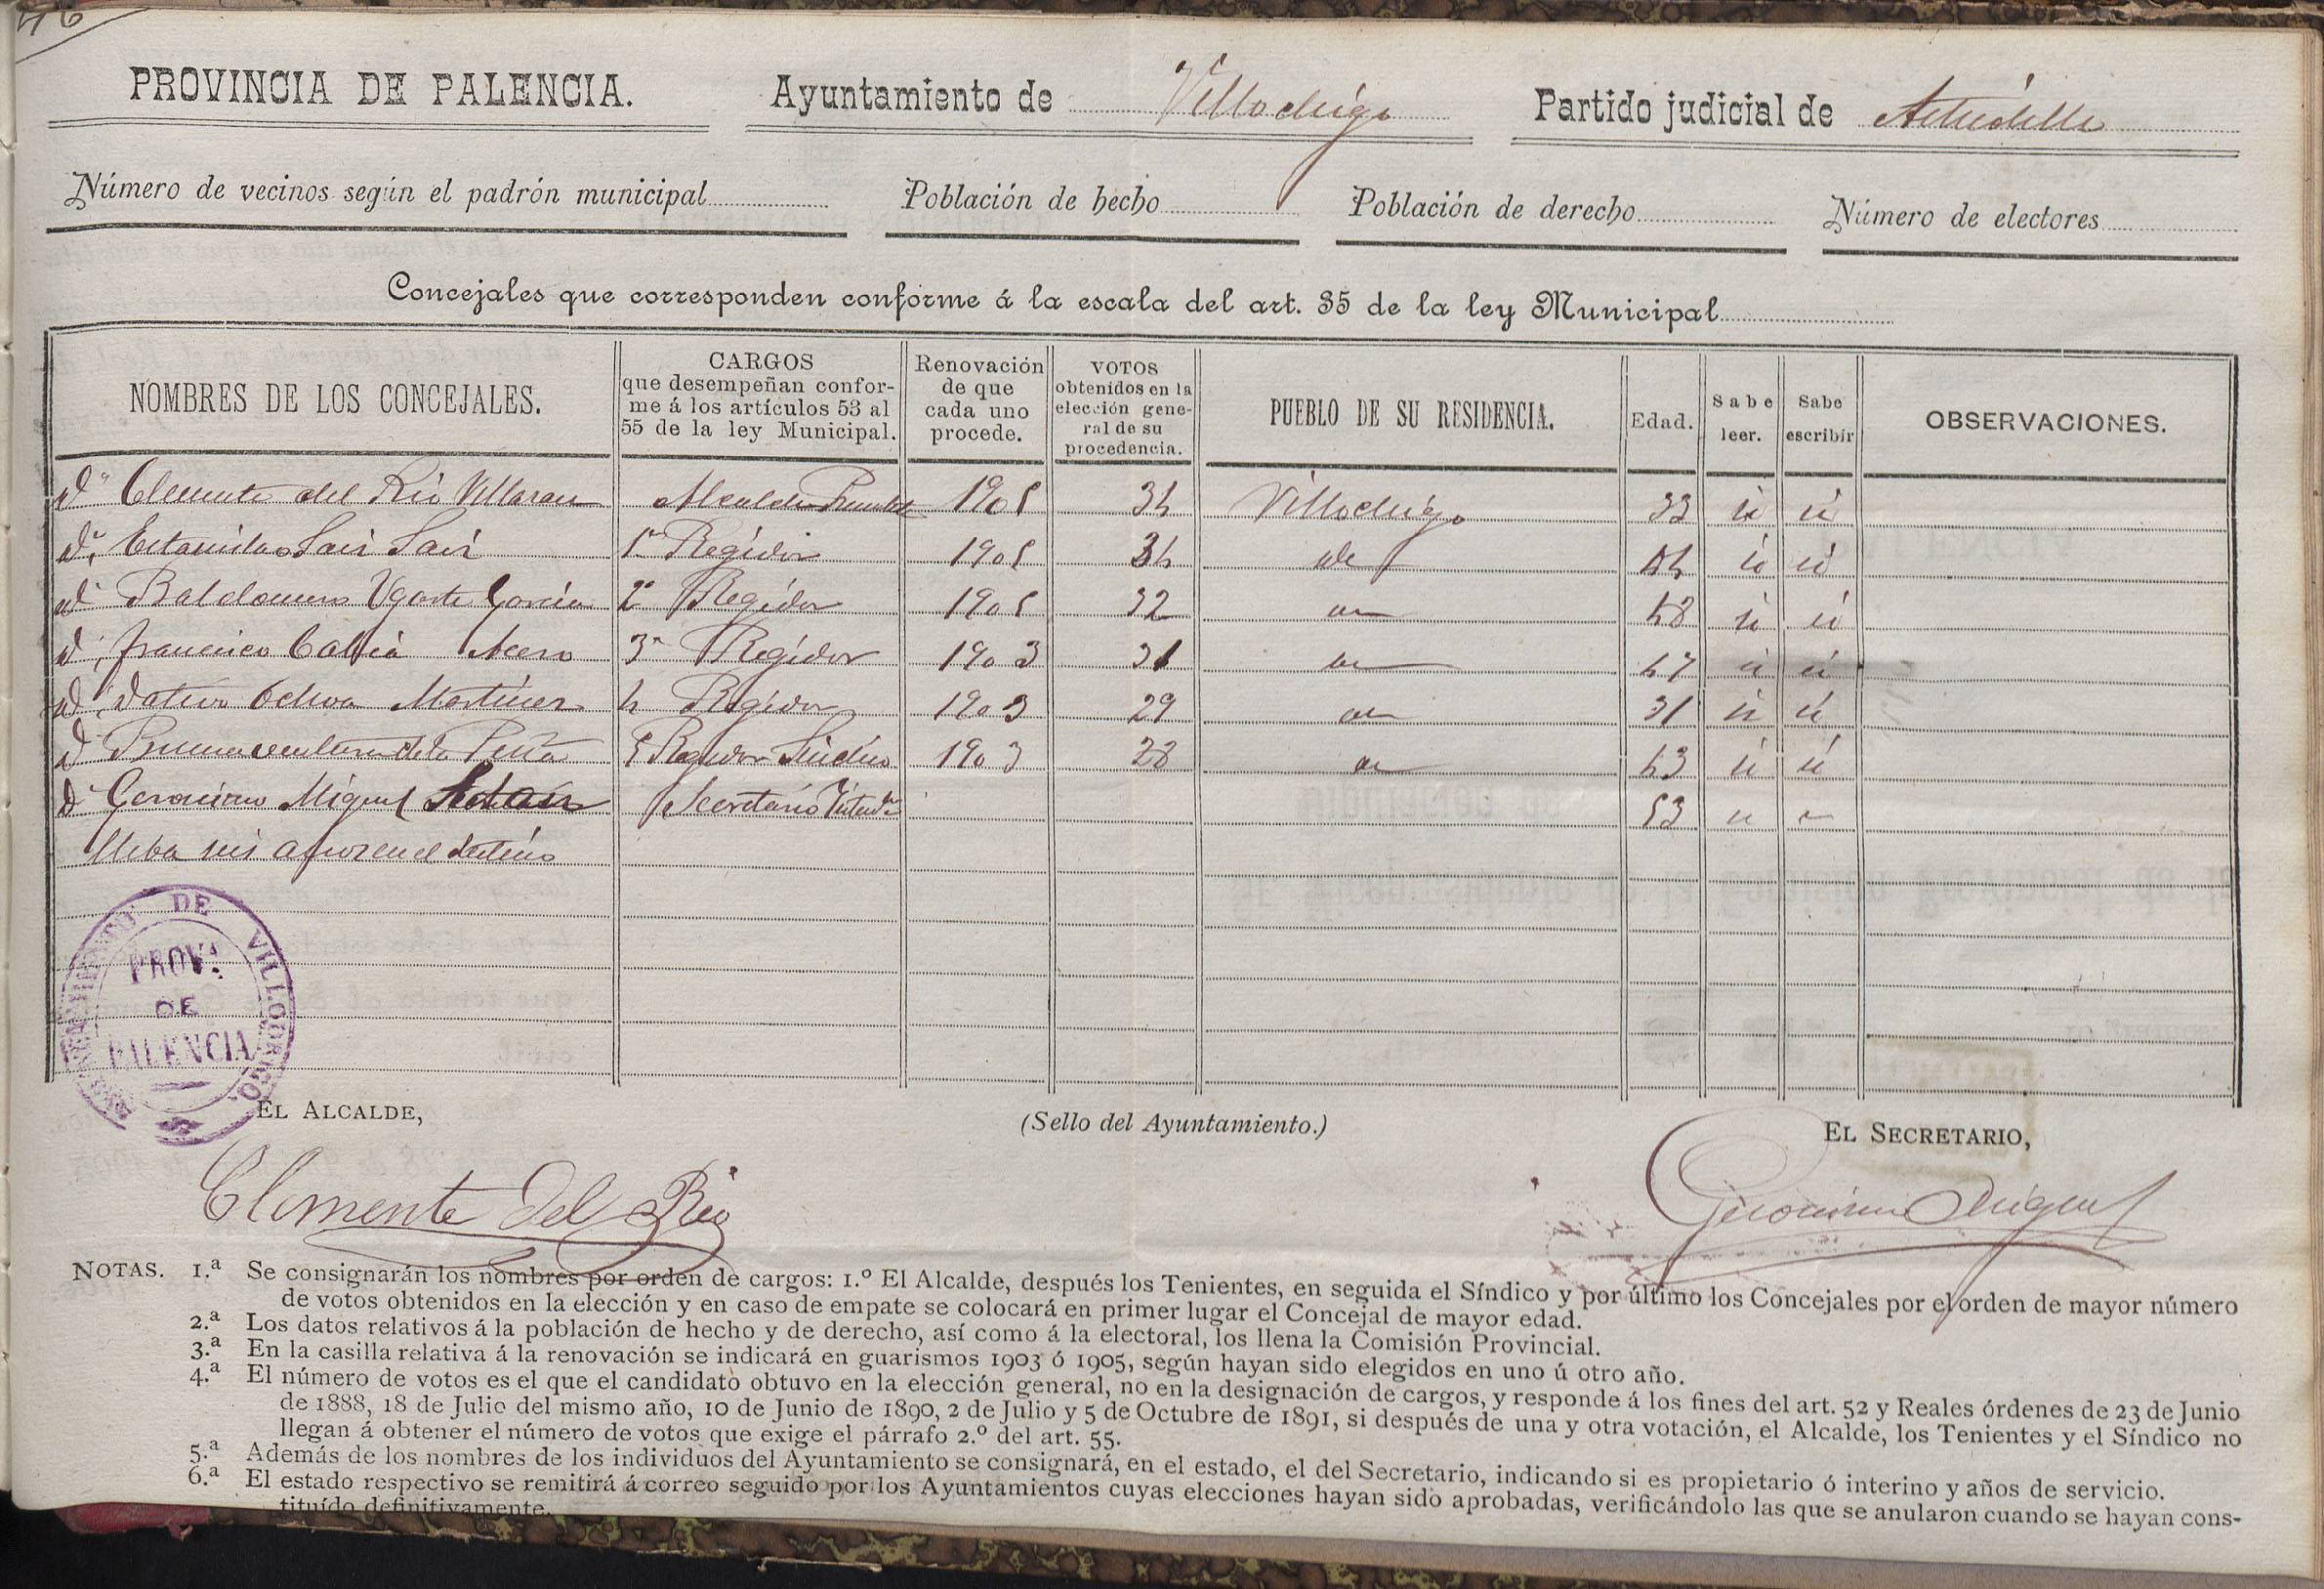 46
PROVINCIA DE PALENCIA. Ayuntamiento de Villodrigo Partido judicial de Astudillo
Número de vecinos según el padrón municipal Población de hecho Población de derecho Número de electores
Concejales que corresponden conforme á la escala del art. 35 de la ley Municipal
NOMBRES DE LOS CONCEJALES.
CARGOS
que desempeñan confor-
me á los artículos 53 al
55 de la ley Municipal.
Renovación
de que
cada uno
procede.
VOTOS
obtenidos en la
elección gene-
ral de su
procedencia.
PUEBLO DE SU RESIDENCIA.
Edad.
Sabe
leer.
Sabe
escribir
OBSERVACIONES.
Dn Clemente del Rio Villaran Alcalde Presidte 1905 34 Villodrigo 33 si si
Dn Estanislao Saiz Saiz 1er Regidor 1905 34 44 si si
Dn Baldomero Ugarte Garcia 2º Regidor 1905 32 48 si si
D. Francisco Calvia Acero 3er Regidor 1903 31 47 si si
D. Dativo Ochoa Martinez 4 Regidor 1903 29 31 si si
D Buenaventura de la Peña 5 Regidor Sindico 1903 28 43 si si
D Geronimo Miguel Secretario 53 si
lleba seis años en el destino
AYUNTAMIENTO DE VILLODRIGO
PROVA
DE
PALENCIA
EL ALCALDE, (Sello del Ayuntamiento.) EL SECRETARIO,
Clemente Del Rio Geronimo Miguel
NOTAS. 1.ª Se consignarán los nombres por orden de cargos: 1.º El Alcalde, después los Tenientes, en seguida el Síndico y por último los Concejales por el orden de mayor número
de votos obtenidos en la elección y en caso de empate se colocará en primer lugar el Concejal de mayor edad.
2.ª Los datos relativos á la población de hecho y de derecho, así como á la electoral, los llena la Comisión Provincial.
3.ª En la casilla relativa á la renovación se indicará en guarismos 1903 ó 1905, según hayan sido elegidos en uno ú otro año.
4.ª El número de votos es el que el candidato obtuvo en la elección general, no en la designación de cargos, y responde á los fines del art. 52 y Reales órdenes de 23 de Junio
de 1888, 18 de Julio del mismo año, 10 de Junio de 1890, 2 de Julio y 5 de Octubre de 1891, si después de una y otra votación, el Alcalde, los Tenientes y el Síndico no
llegan á obtener el número de votos que exige el párrafo 2.º del art. 55.
5.ª Además de los nombres de los individuos del Ayuntamiento se consignará, en el estado, el del Secretario, indicando si es propietario ó interino y años de servicio.
6.ª El estado respectivo se remitirá á correo seguido por los Ayuntamientos cuyas elecciones hayan sido aprobadas, verificándolo las que se anularon cuando se hayan cons-
tituído definitivamente.